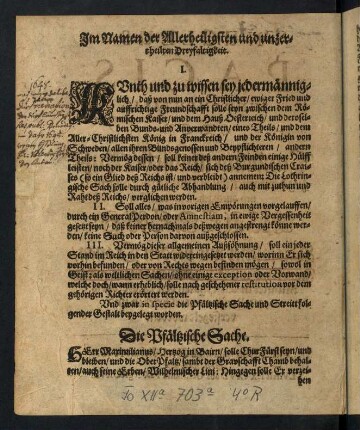 Im Namen der Allerheiligsten und unzer-
theilten Dreyfaltigkeit.
I.
KUnth und zu wissen sey jedermännig-
lich / daß von nun an ein Christlicher / ewiger Fried und
auffrichtige Freundschafft solle seyn zwischen dem Rö-
mischen Kaiser / und dem Hauß Oesterreich / und derosel-
ben Bunds- und Anverwandten / eines Theils / und dem
Aller-Christlichsten König in Franckreich / und der Königin von
Schweden / allen ihren Bundsgenossen und Beypflichteren / andern
Theils: Vermög dessen / soll keiner deß andern Feinden einige Hülff
leisten / noch der Kaiser oder das Reich / sich deß Burgundischen Crai-
ses (so ein Glied deß Reichs ist / und verbleibt) annemen: Die Lothrin-
gische Sach solle durch gütliche Abhandlung / auch mit zuthun und
Raht deß Reichs / verglichen werden.
II. Soll alles / was in vorigen Empörungen vorgelauffen /
durch ein General Perdon / oder Amnestiam, in ewige Vergessenheit
gesetzt seyn / daß keiner hernachmals deßwegen angestrengt könne wer-
den / keine Sach oder Person darvon außgeschlossen.
III. Vermög dieser allgemeinen Außsöhnung / soll ein jeder
Stand im Reich in den Staat wider eingesetzt werden / worinn Er sich
vorhin befunden / oder von Rechts wegen befinden mögen / sowol in
Geist als weltlichen Sachen / ohne einige exception oder Vorwand /
welche doch / wann erheblich / solle nach geschehener restitution vor dem
gehörigen Richter erörtert werden.
Und zwar in specie die Pfältzische Sache und Streit fol-
gender Gestalt beygelegt worden.
Die Pfältzische Sache.
HErr Maximilianus / Hertzog in Bairn / solle Chur Fürst seyn / und
bleiben / und die Ober Pfaltz / sambt der Gravschafft Chamb behal-
ten / auch seine Erben / Wilhelmischer Lini: Hingegen solle Er verzei-
hen
To XIIa 703a 4° R